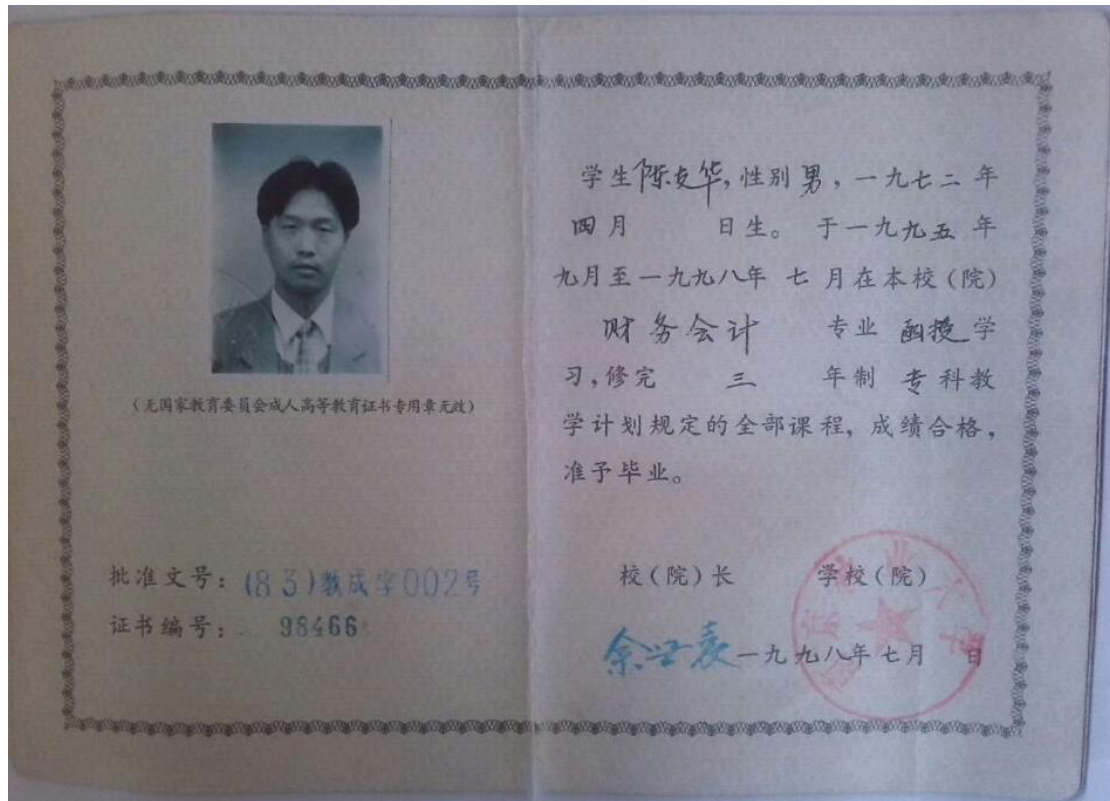 (无国家教育委员会成人高等教育证书专用章无效)
批准文号：(83)教成字002号
证书编号：98466
学生陈友华,性别男,一九七二年
四月 日生。于一九九五年
九月至一九九八年 七 月在本校(院)
财务会计 专业 函授学
习,修完 三 年制 专科教
学计划规定的全部课程, 成绩合格,
准予毕业。
校(院)长 学校(院)
一九九八年七月 日